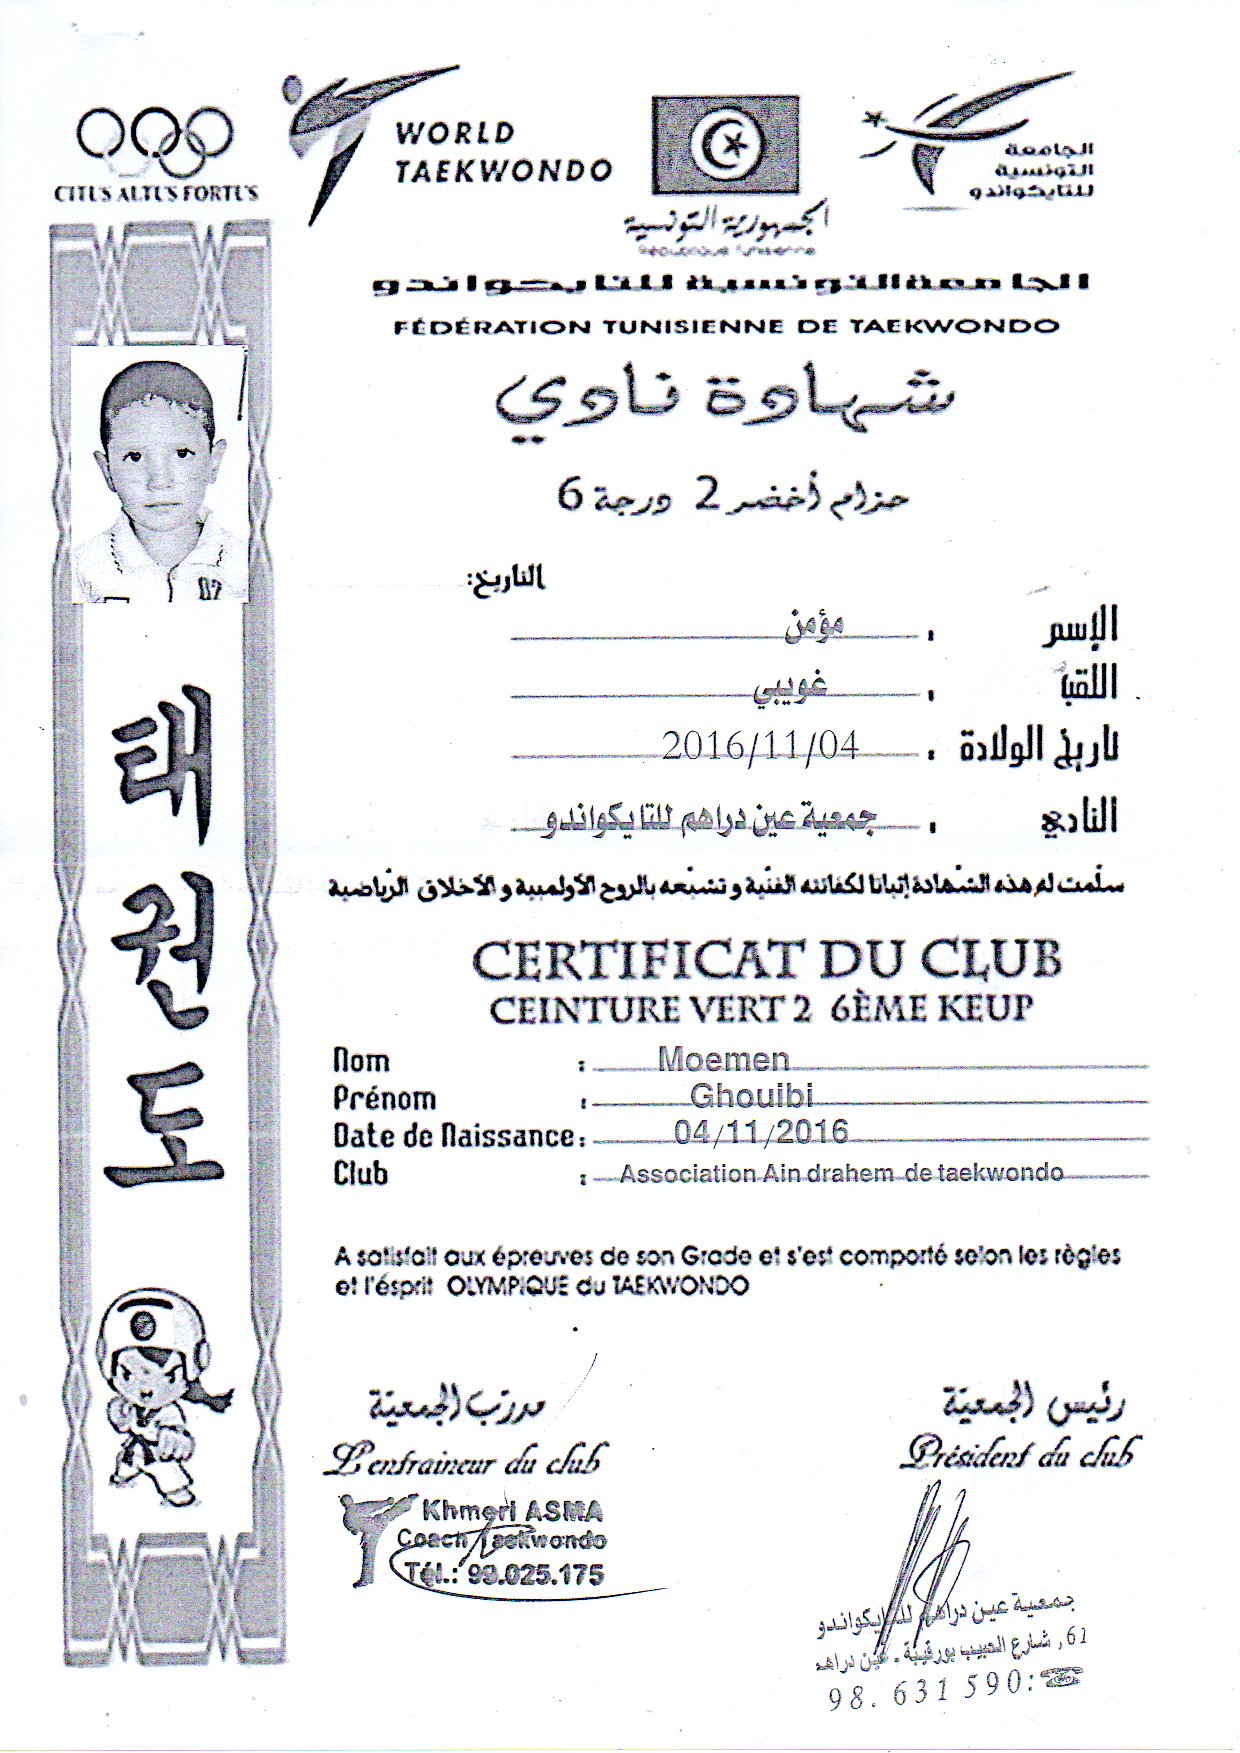 CITIUS ALTIUS FORTIUS
WORLD
TAEKWONDO
الجمهورية التونسية
République Tunisienne
الجامعة
التونسية
للتايكواندو
الجامعة التونسية للتايكواندو
FÉDÉRATION TUNISIENNE DE TAEKWONDO
شهادة نادي
حزام أخضر 2 درجة 6
التاريخ:
الإسم : مؤمن
اللقب : غويبي
تاريخ الولادة : 2016/11/04
النادي : جمعية عين دراهم للتايكواندو
سلّمت له هذه الشّهادة إثباتا لكفائته الفنّية و تشبّعه بالروح الأولمبية و الأخلاق الرّياضية
CERTIFICAT DU CLUB
CEINTURE VERT 2 6ÈME KEUP
Nom : Moemen
Prénom : Ghouibi
Date de Naissance : 04/11/2016
Club : Association Ain drahem de taekwondo
A satisfait aux épreuves de son Grade et s'est comporté selon les règles
et l'ésprit OLYMPIQUE du TAEKWONDO
مدرّب الجمعيّة
L'entraineur du club
Khmeri ASMA
Coach Taekwondo
Tél.: 99.025.175
رئيس الجمعيّة
Président du club
جمعية عين دراهم للتايكواندو
61, شارع الحبيب بورقيبة . عين دراهم
98. 631 590:☎
태권도